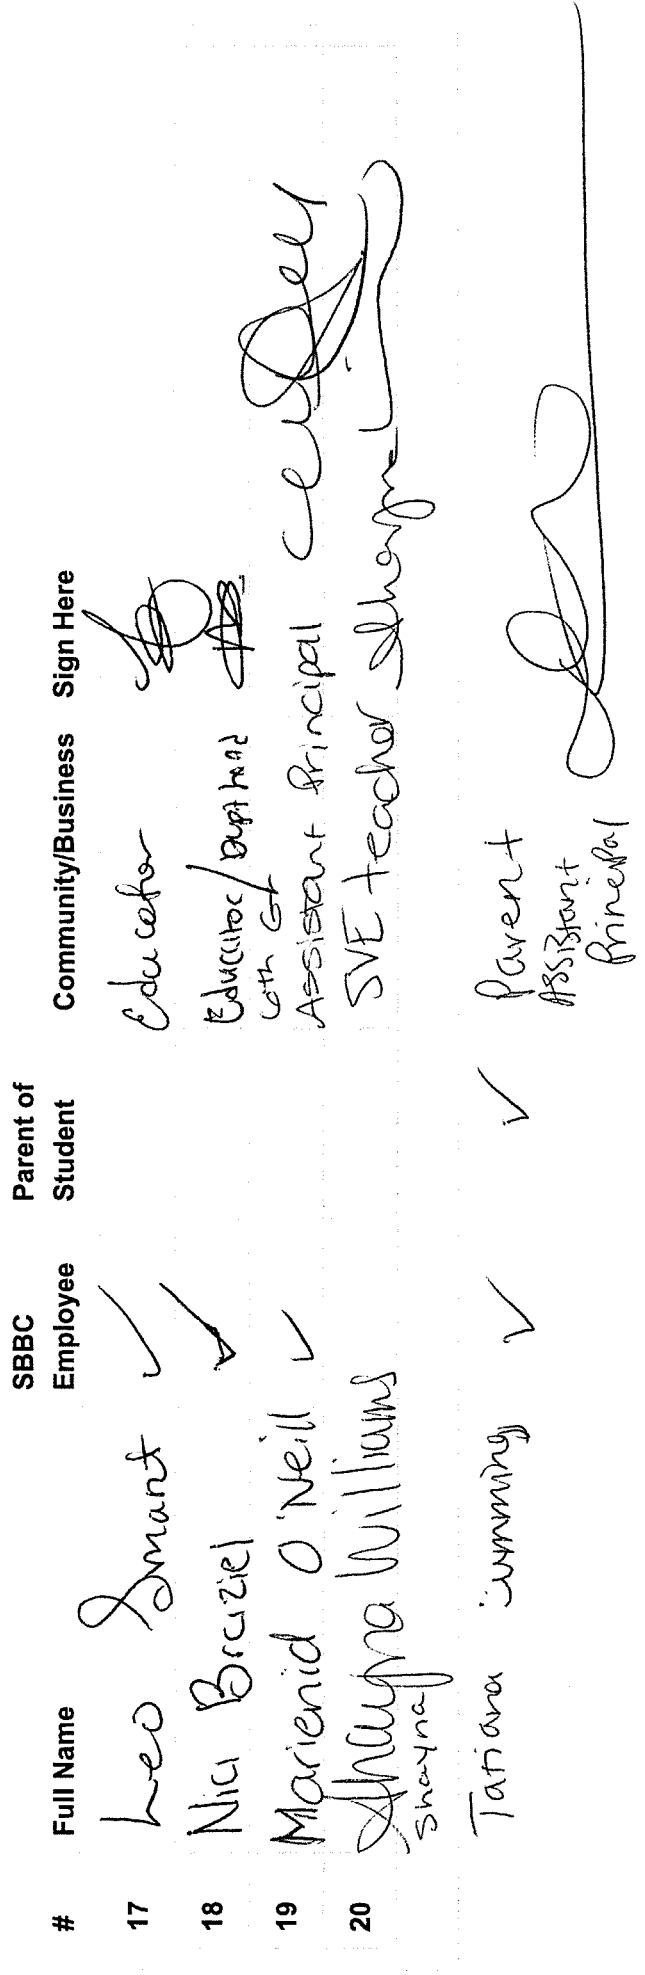 # Full Name SBBC Employee Parent of Student Community/Business Sign Here
17 Leo Smart ✓ Educator
18 Nici Braziel ✓ Educator/Dept head
6th Gr
19 Marienid O'Neill ✓ Assistant Principal
20 Shayna Williams SVE teacher
Shayna
Tatiana ✓ ✓ Parent
Assistant
Principal